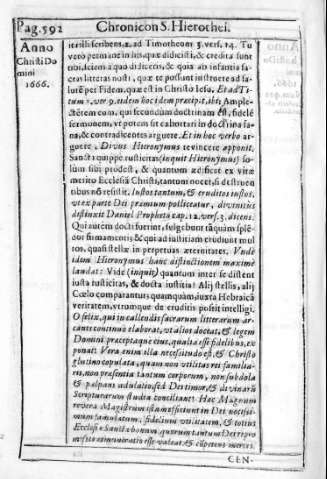 Pag.592
Chronicon S. Hierothei.
Anno
Christi Do
mini
1666.
it illi scribens 2. ad Timotheum 3. vers. 14. Tu
vero permane in his, quæ didicisti, & credita sunt
tibi, sciens à quo didiceris, & quia ab infantia sa-
cras litteras nosti, quæ te possunt instruere ad sa-
lutẽ per Fidem, quæ est in Christo Iesu. Et ad Ti-
tum 1. ver. 9. eidem hoc idem præcipit, ibi; Ample-
ctẽtem eum, qui secundum doctrinam est, fidelẽ
sermonem, vt potens sit exhortari in doctrina sa-
na, & contradicentes arguere. Et in hoc verbo ar-
guere, Divus Hieronymus
Sancta quippe rusticitas (inquit Hieronymus) so-
lùm sibi prodest, & quantum ædificat ex vitæ
merito Ecclesiã Christi, tantum nocet, si destruen-
tibus nõ resistit. Iustos tantùm, & eruditos iustos,
vt ex parte Dei præmium polliceatur, divinitùs
distinxit Daniel Propheta cap. 12. vers. 3. dicens.
Qui autem docti fuerint, fulgebunt tãquàm splẽ-
dor firmamenti; & qui ad iustitiam erudiunt mul-
tos, quasi stellæ in perpetuas æternitates. Vude
idem Hieronymus hanc distinctionem maximè
laudat: Vide (inquit) quantum inter se distent
iusta rusticitas, & docta iustitia: Alij stellis, alij
Cœlo comparantur; quamquàm, iuxta Hebraicã
veritatem, vtrumque de eruditis possit intelligi.
O felix, qui in callendis sacrarum litterarum ar-
canis continuò elaborat, vt alios doceat, & legem
Domini præceptaque eius, qualia esse fidelibus, ex-
ponat: Vera enim illa necessitudo est, & Christo
glutino copulata, quam non vtilitas rei familia-
ris, non præsentia tantum corporum, non subdola
& palpans adulatio, sed Dei timor, & divinarũ
Scripturarum studia conciliant: Hac Magnum
revera Magistrum
mum famulatum, fidelium vtilitatem, & totius
Ecclesiæ Sanctæ bonum,
CEN-